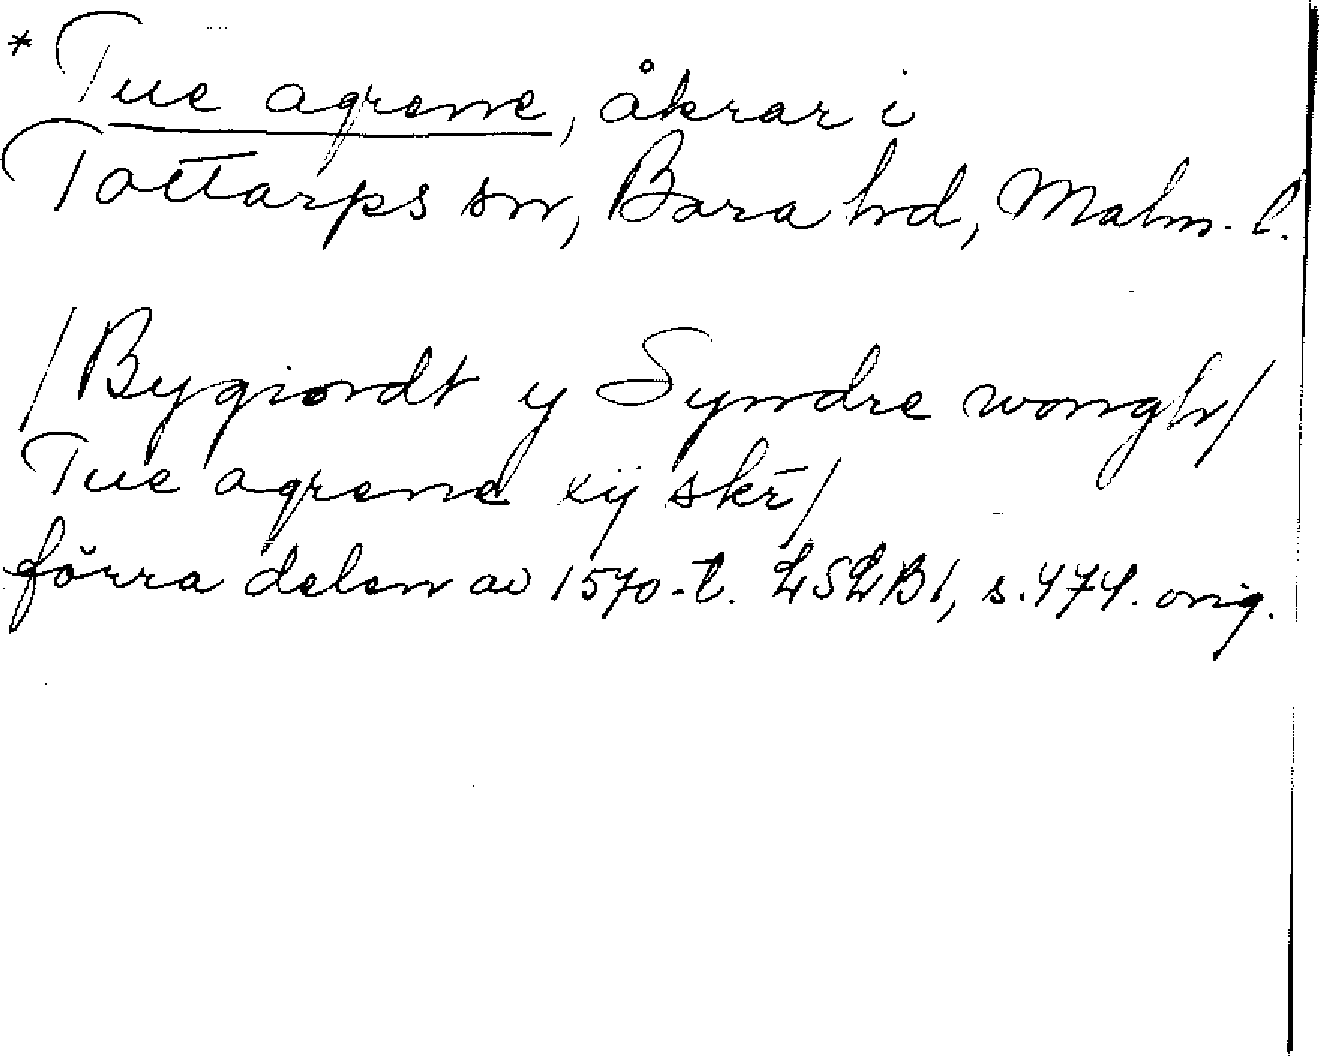 * Tue agrene, åkrar i
Tottarps sn, Bara hd, Malm. l.
/Bygiordt y Syndre wongh/
Tue agrene xij skr̄/
förra delen av 1570-t. LSLB 1, s. 474. orig.